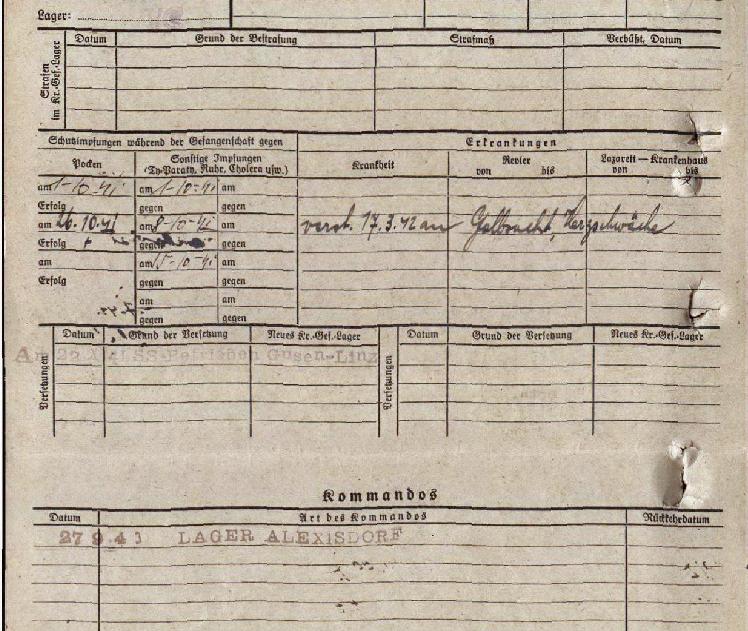 Lager:
Strafen im Kr.-Gef.-Lager
Datum Grund der Bestrafung Strafmaß Verbüßt, Datum
Schutzimpfungen während der Gefangenschaft gegen Erkrankungen
Pocken Sonstige Impfungen (Ty-Paraty, Ruhr, Cholera usw.) Krankheit Revier von bis Lazarett — Krankenhaus von bis
am 1-10-41 am 1-10-41 am
Erfolg gegen gegen
am 26.10.41 am 8-10-41 am verst. 17.3.42 an Gelbsucht, Herzschwäche
Erfolg gegen gegen
am am 15-10-41 am
Erfolg gegen gegen
am am
gegen gegen
Versetzungen
Datum Grund der Versetzung Neues Kr.-Gef.-Lager Versetzungen Datum Grund der Versetzung Neues Kr.-Gef.-Lager
Am 22 Gusen-Linz
Kommandos
Datum Art des Kommandos Rückkehrdatum
27 9.43 LAGER ALEXISDORF